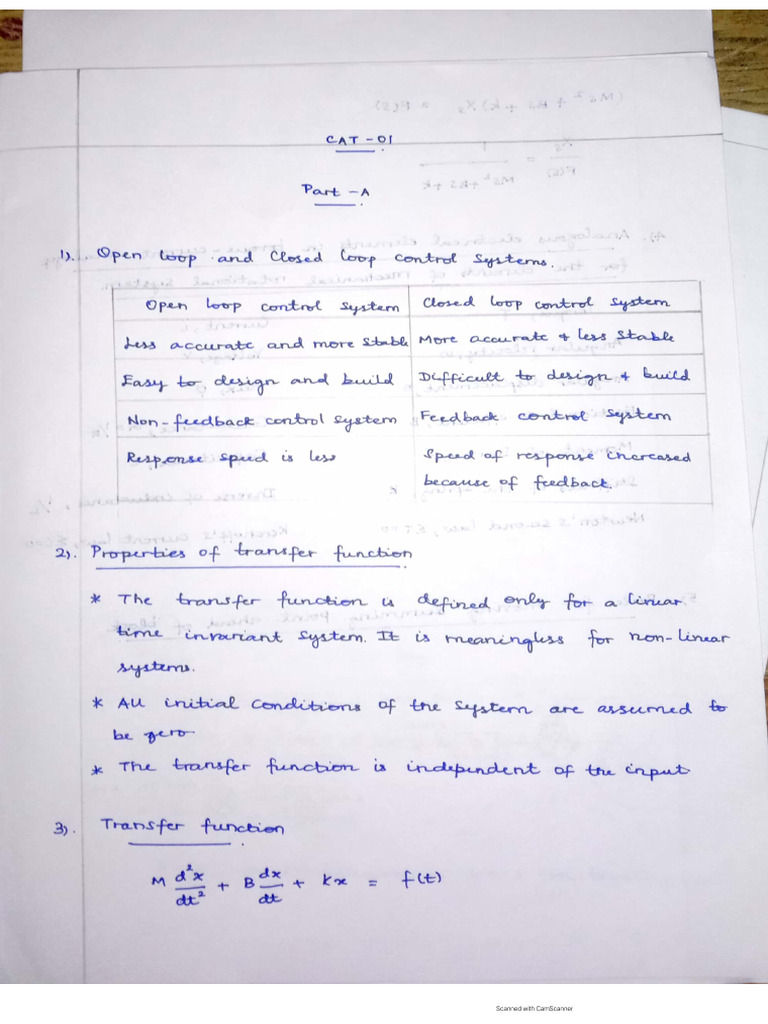 CAT - 01
Part - A
1). Open loop and Closed Loop control Systems.
Open loop control System | Closed loop control System
Less accurate and more Stable | More accurate & less Stable
Easy to design and build | Difficult to design & build
Non-feedback control System | Feedback control System
Response speed is less | Speed of response increased
because of feedback.
2). Properties of transfer function
* The transfer function is defined only for a linear
time invariant System. It is meaningless for non-linear
systems.
* All initial conditions of the System are assumed to
be zero
* The transfer function is independent of the input
3). Transfer function
M d²x/dt² + B dx/dt + Kx = f(t)
Scanned with CamScanner